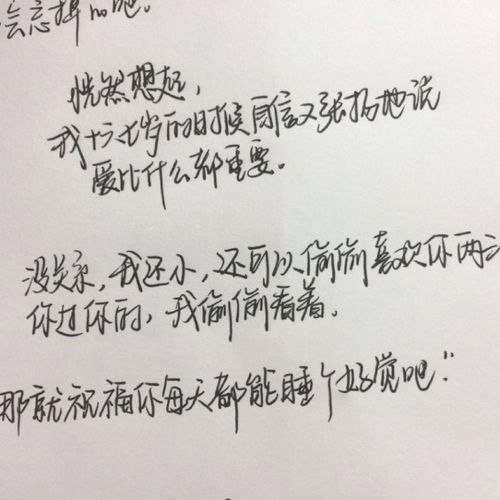 会忘掉的吧。
恍然想起,
我十六七岁的时候自信又张扬地说
爱比什么都重要。
没关系,我还小,还可以偷偷喜欢你两三
你过你的,我偷偷看着。
那就祝福你每天都能睡个好觉吧"